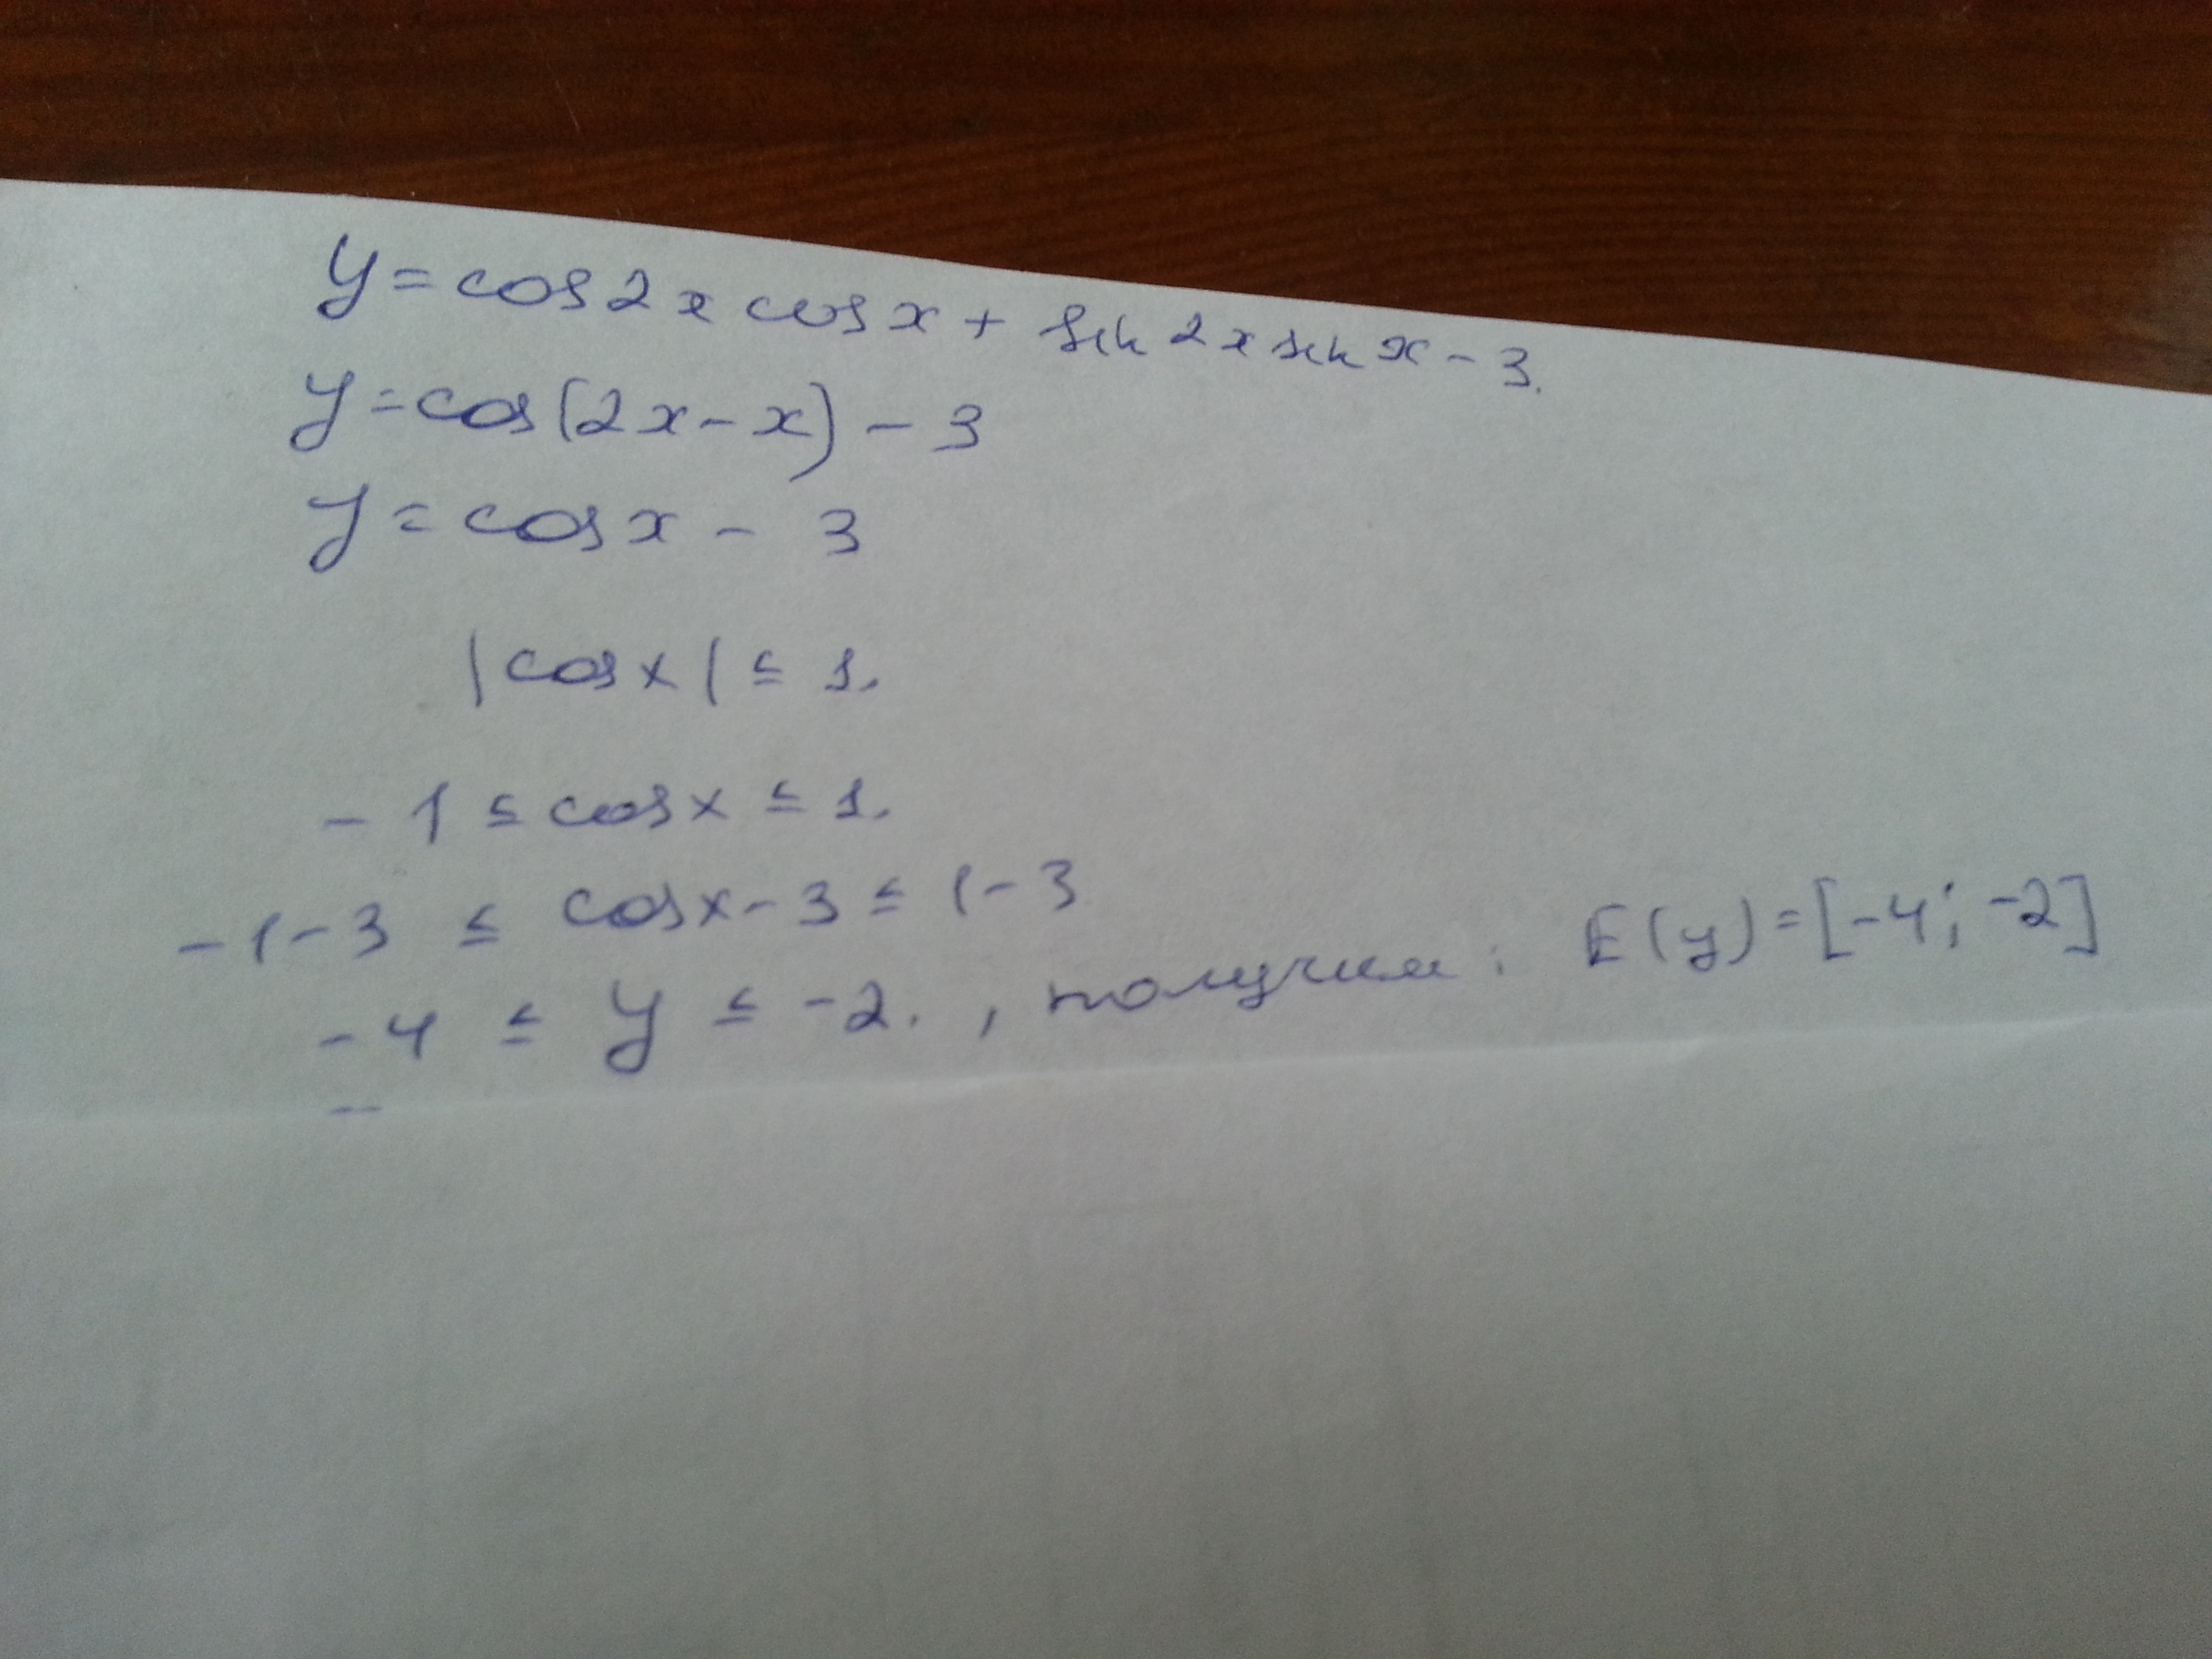 y = cos 2x cos x + sin 2x sin x - 3.
y = cos(2x - x) - 3
y = cos x - 3
|cos x| ≤ 1.
- 1 ≤ cos x ≤ 1.
-1-3 ≤ cos x - 3 ≤ 1-3
-4 ≤ y ≤ -2. , получим : E(y) = [-4; -2]
–